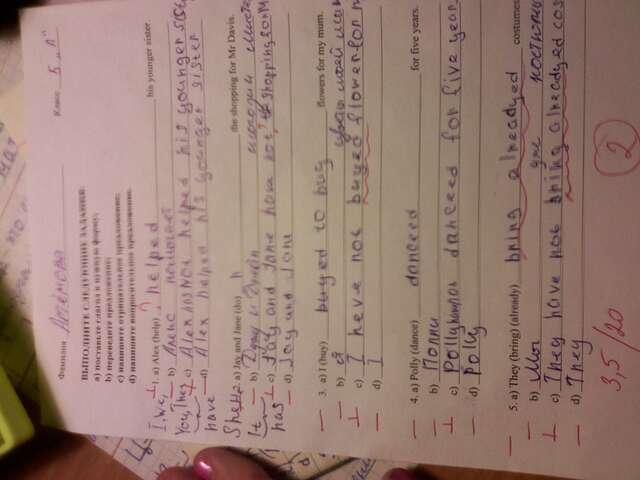 Фамилия Артёмова Класс 5 "Л"
ВЫПОЛНИТЕ СЛЕДУЮЩИЕ ЗАДАНИЯ:
a) поставьте глагол в нужную форму;
b) переведите предложение;
c) напишите отрицательное предложение;
d) напишите вопросительное предложение.
I, we, 1. a) Alex (help) ? helped his younger sister.
b) Алекс помогает
You, They c) Alex has not helped his younger sist
d) Alex helped his younger sister
have
She, He, 2. a) Jay and Jane (do) h the shopping for Mr Davis.
It b) и
c) Jay and Jane have not ? shopping for M
has d) Jay and Jane
3. a) I (buy) buyed to buy flowers for my mum.
b) я цветы моей мам
c) I heve not buyed flower for m
d) I
4. a) Polly (dance) danceed for five years.
b) Полли
c) Polly has not danceed for five year
d) Polly
5. a) They (bring) (already) bring alreadyed costumes
b) Мы уже костюмы
c) They have not bring alreadyed cos
d) They
3,5/20 2